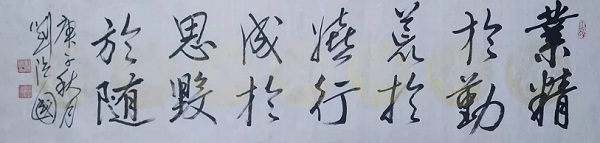 業精
於勤
荒於
嬉行
成於
思毀
於随
庚子秋月
劉國